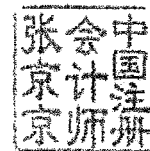 中国注册
会计师
张京京